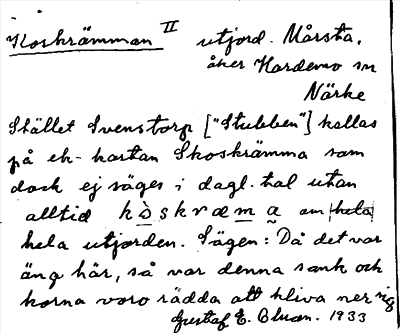 Koskrämman II utjord. Mårsta,
åker Hardemo sn
Närke
Stället Svenstorp ["Stubben"] kallas
på ek-kartan Skoskrämma som
dock ej säges i dagl. tal utan
alltid kòskræma om hela
hela utjorden. Sägen: Då det var
äng här, så var denna sank och
korna voro rädda att bliva ner sig
Gustaf E. 1933